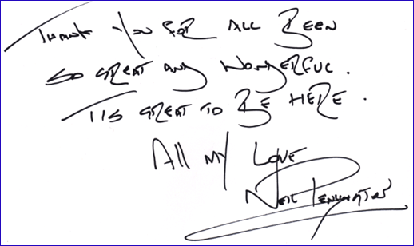 THANK YOU FOR ALL BEEN
SO GREAT AND WONDERFUL.
TIS GREAT TO BE HERE.
All MY LOVE